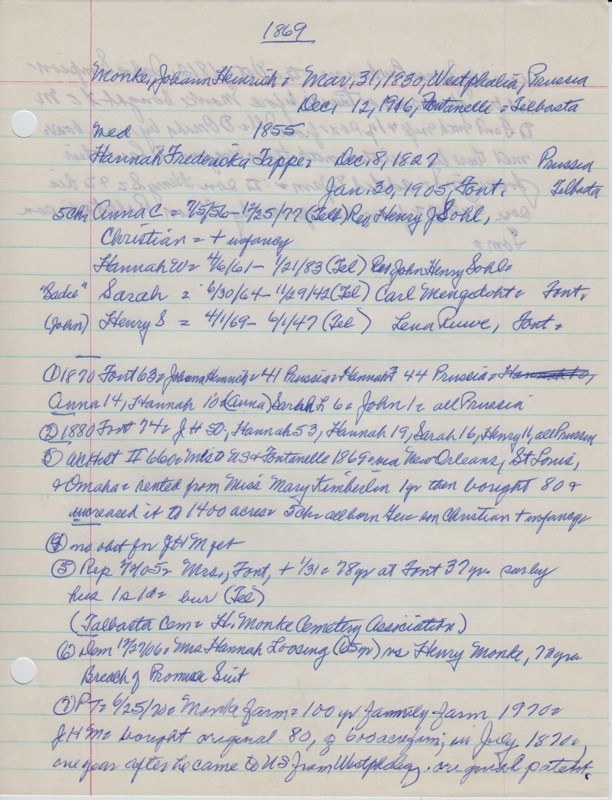 1869
Monke, Johann Heinrich = Mar, 31, 1830, Westphalia, Prussia
Dec, 12, 1916, Fontanelle = Telbasta
med 1855
Hannah Fredericka Tappe = Dec, 8, 1827 Prussia
Jan. 30, 1905, Font. Telbasta
5 ch, Anna C = 7/5/56 - 12/25/77 (Telb) Rev, Henry J Sohl,
Christian = + infancy
Hannah W = 4/6/61 - 1/21/83 (Tel) Rev John Henry Sohl =
"Sadie" Sarah = 6/30/64 - 11/29/42 (Tel) Carl Mengedoht = Font,
(John) Henry S = 4/1/69 - 6/1/47 (Tel) Lena Ruwe, Font =
① 1870 Font 63 = Johann Heinrich = 41 Prussia = Hannah F 44 Prussia =
Anna 14, Hannah 10 = (Anna) Sarah L 6 = John 1 = all Prussia
② 1880 Font 74 = J H 50, Hannah 53, Hannah 19, Sarah 16, Henry 11, all Prussia
③ Hist II 660 = to US & Fontanelle 1869 = via New Orleans, St Louis,
& Omaha = rented from Miss Mary Kimberlin 1 yr then bought 80 &
increased it to 1400 acres = 5 ch = all born Ger = son Christian + infancy
④ no obit for J H M yet
⑤ Rep 2/2/05 = Mrs, Font, + 1/31 = 78 yr at Font 37 yr = surv by
hus 1 s 1 d = bur (Tel)
(Talbasta Cem = H. Monke Cemetery Association)
⑥ Dem 12/27/06 = Mrs Hannah Loosing (65 yr) vs Henry Monke, 72 yrs
Breach of Promise Suit
⑦ PT = 6/25/70 = Monke farm = 100 yr family farm 1970 =
J H M = bought original 80, of 600 acre farm, in July, 1870,
one year after he came to US from Westphalia, original patent.